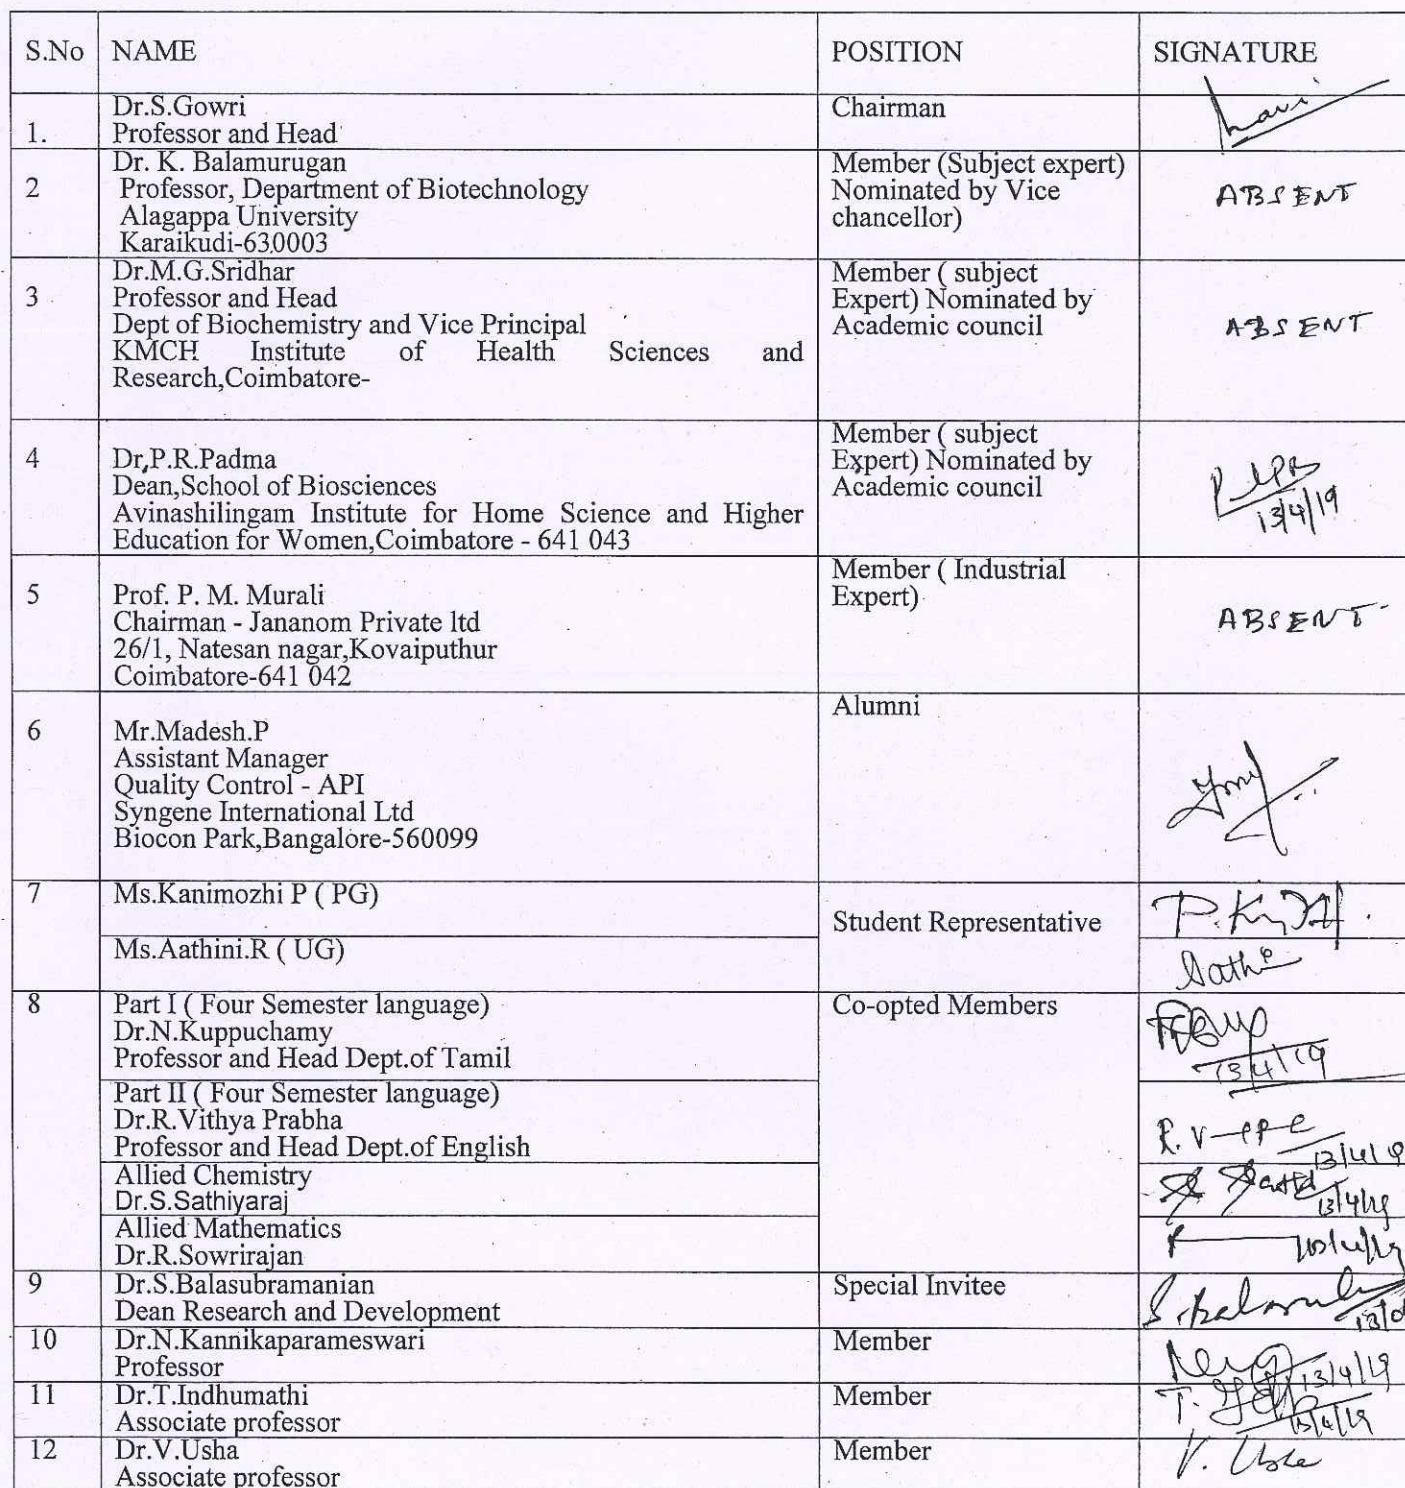 S.No NAME POSITION SIGNATURE
1.
Dr.S.Gowri
Professor and Head
Chairman
2
Dr. K. Balamurugan
Professor, Department of Biotechnology
Alagappa University
Karaikudi-630003
Member (Subject expert)
Nominated by Vice
chancellor)
ABSENT
3
Dr.M.G.Sridhar
Professor and Head
Dept of Biochemistry and Vice Principal
KMCH Institute of Health Sciences and
Research,Coimbatore-
Member ( subject
Expert) Nominated by
Academic council
ABSENT
4
Dr,P.R.Padma
Dean,School of Biosciences
Avinashilingam Institute for Home Science and Higher
Education for Women,Coimbatore - 641 043
Member ( subject
Expert) Nominated by
Academic council
13/4/19
5
Prof. P. M. Murali
Chairman - Jananom Private ltd
26/1, Natesan nagar,Kovaiputhur
Coimbatore-641 042
Member ( Industrial
Expert)
ABSENT
6
Mr.Madesh.P
Assistant Manager
Quality Control - API
Syngene International Ltd
Biocon Park,Bangalore-560099
Alumni
7
Ms.Kanimozhi P ( PG)
Ms.Aathini.R ( UG)
Student Representative
8
Part I ( Four Semester language)
Dr.N.Kuppuchamy
Professor and Head Dept.of Tamil
Co-opted Members
13/4/19
Part II ( Four Semester language)
Dr.R.Vithya Prabha
Professor and Head Dept.of English
13/4/19
Allied Chemistry
Dr.S.Sathiyaraj
13/4/19
Allied Mathematics
Dr.R.Sowrirajan
9
Dr.S.Balasubramanian
Dean Research and Development
Special Invitee
10
Dr.N.Kannikaparameswari
Professor
Member
13/4/19
11
Dr.T.Indhumathi
Associate professor
Member
13/4/19
12
Dr.V.Usha
Associate professor
Member
V. Usha